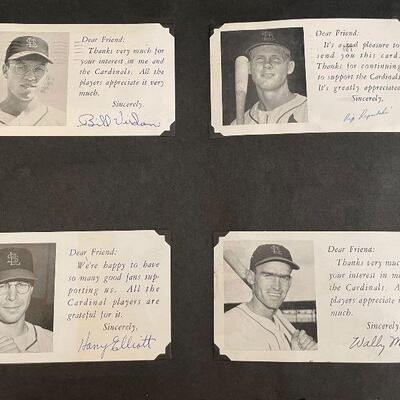 Dear Friend:
Thanks very much for
your interest in me and
the Cardinals. All the
players appreciate it very
much.
Sincerely,
Bill Virdon
Dear Friend:
It's a real pleasure to
send you this card.
Thanks for continuing
to support the Cardinals.
It's greatly appreciated.
Sincerely,
Rip Repulski
Dear Friend:
We're happy to have
so many good fans sup-
porting us. All the
Cardinal players are
grateful for it.
Sincerely,
Harry Elliott
Dear Friend:
Thanks very much
your interest in me
the Cardinals. All
players appreciate it
much.
Sincerely,
Wally M